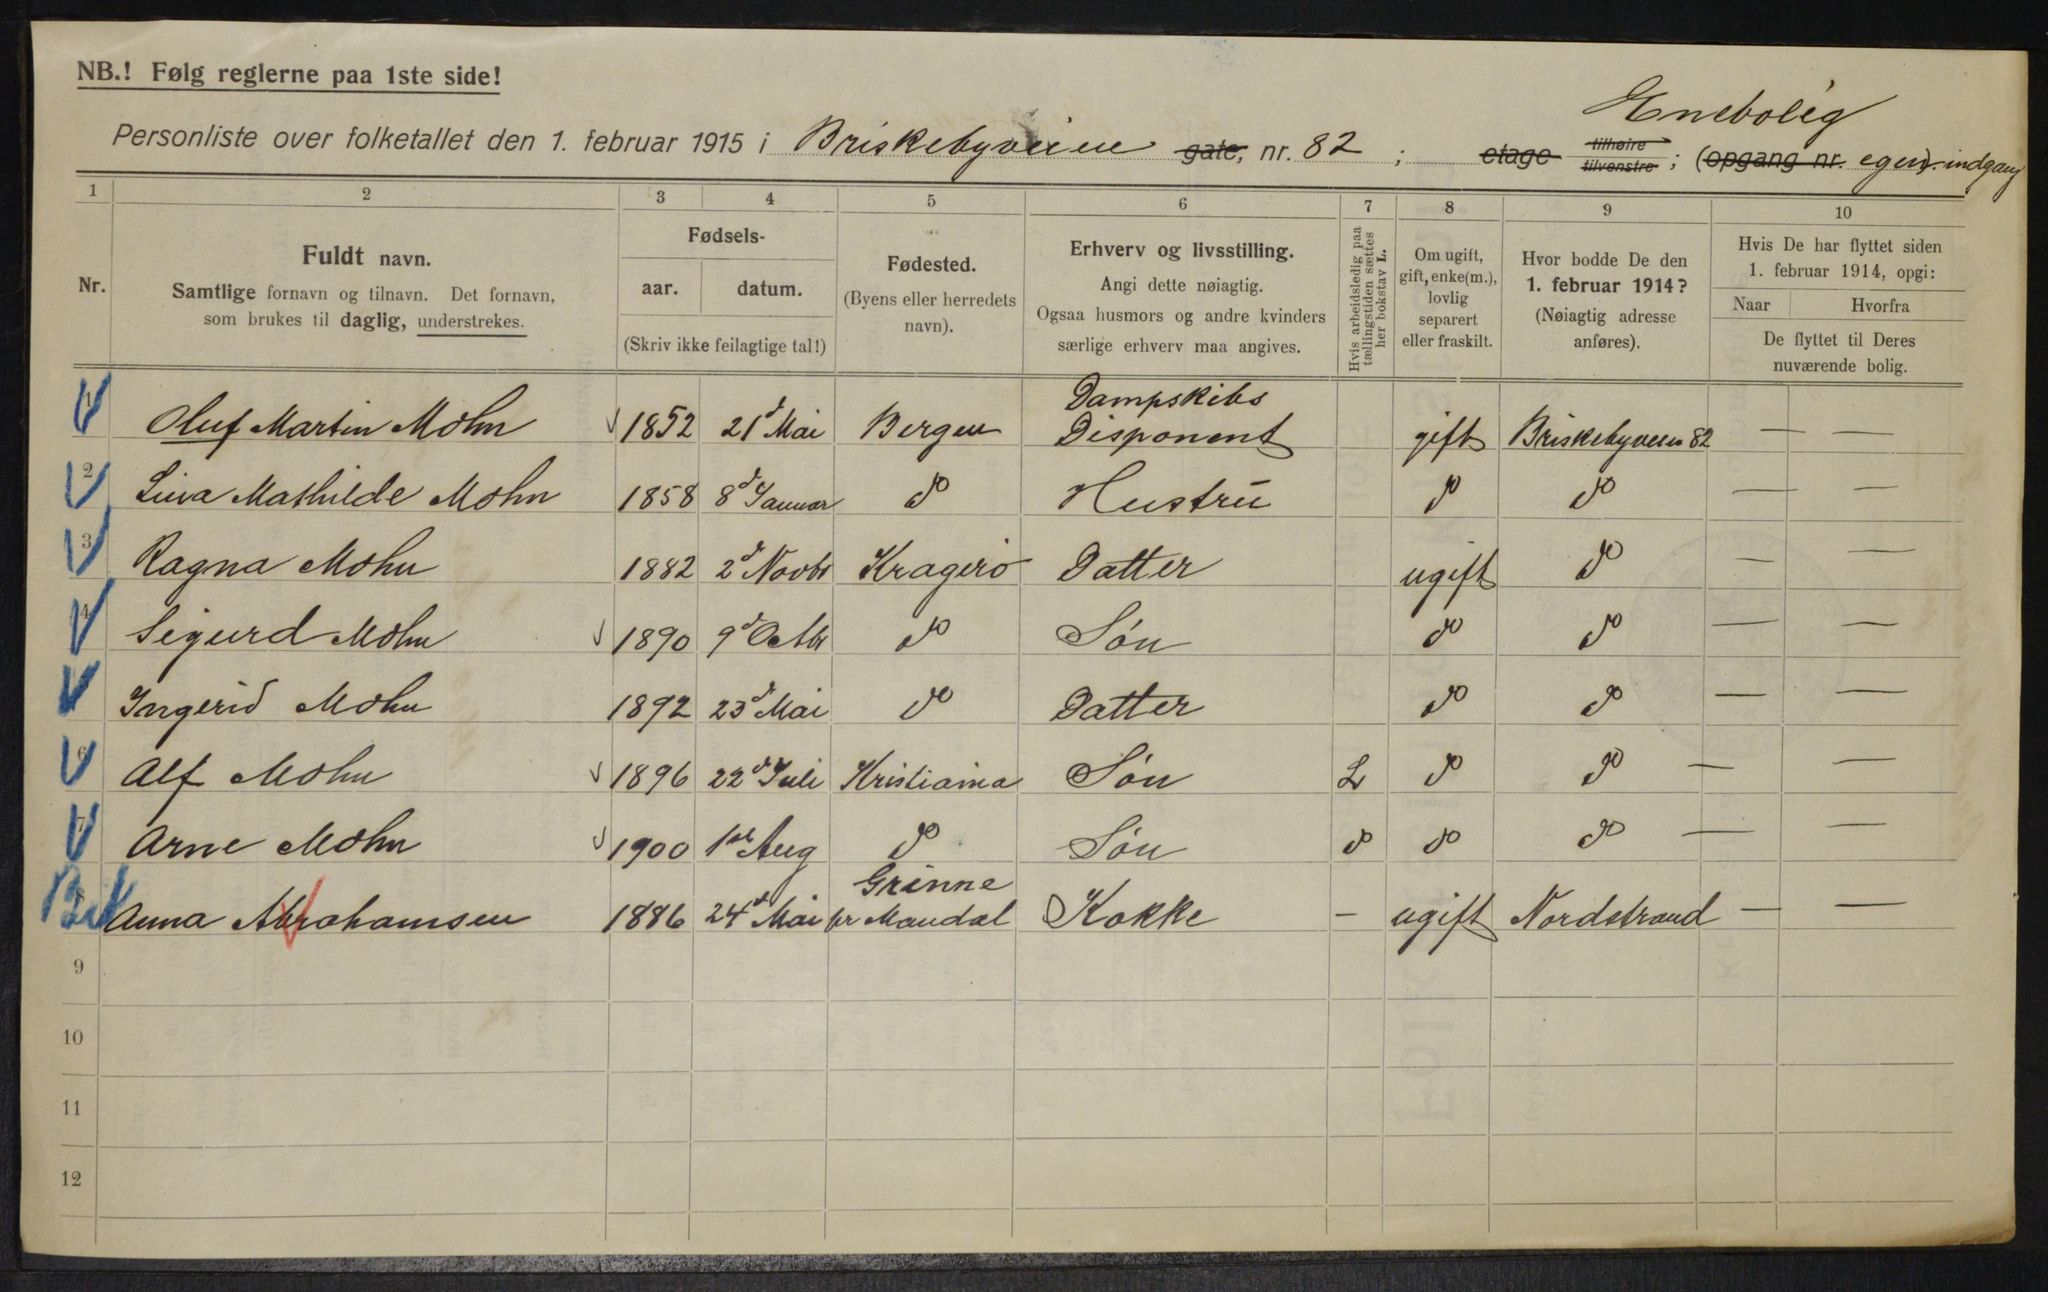 NB.! Følg reglerne paa 1ste side!
Enebolig
Personliste over folketallet den 1. februar 1915 i Briskebyveien gate, nr. 82 ; etage tilhøire tilvenstre ; (opgang nr. egen). indgang
1 2 3 4 5 6 7 8 9 10
Nr.
Fuldt navn.
Samtlige fornavn og tilnavn. Det fornavn,
som brukes til daglig, understrekes.
Fødsels-
aar. datum.
(Skriv ikke feilagtige tal!)
Fødested.
(Byens eller herredets
navn).
Erhverv og livsstilling.
Angi dette nøiagtig.
Ogsaa husmors og andre kvinders
særlige erhverv maa angives.
Hvis arbeidsledig paa
tællingstiden sættes
her bokstav L.
Om ugift,
gift, enke(m.),
lovlig
separert
eller fraskilt.
Hvor bodde De den
1. februar 1914?
(Nøiagtig adresse
anføres).
Hvis De har flyttet siden
1. februar 1914, opgi:
Naar Hvorfra
De flyttet til Deres
nuværende bolig.
Dampskibs
1 Oluf Martin Mohn 1852 21d Mai Bergen Disponent gift Briskebyveien 82 — —
2 Lina Mathilde Mohn 1858 8d Januar do Hustru do do — —
3 Ragna Mohn 1882 2d Novbr Kragerö Datter ugift do — —
4 Sigurd Mohn 1890 9d Octbr do Sön do do — —
Ingerid Mohn 1892 23d Mai do Datter do do — —
6 Alf Mohn 1896 22d Juli Kristiania Sön L do do — —
7 Arne Mohn 1900 1ste Aug do Sön do do do — —
Grinne
Anna Abrahamsen 1886 24d Mai pr Mandal Kokke — ugift Nordstrand — —
9
10
11
12